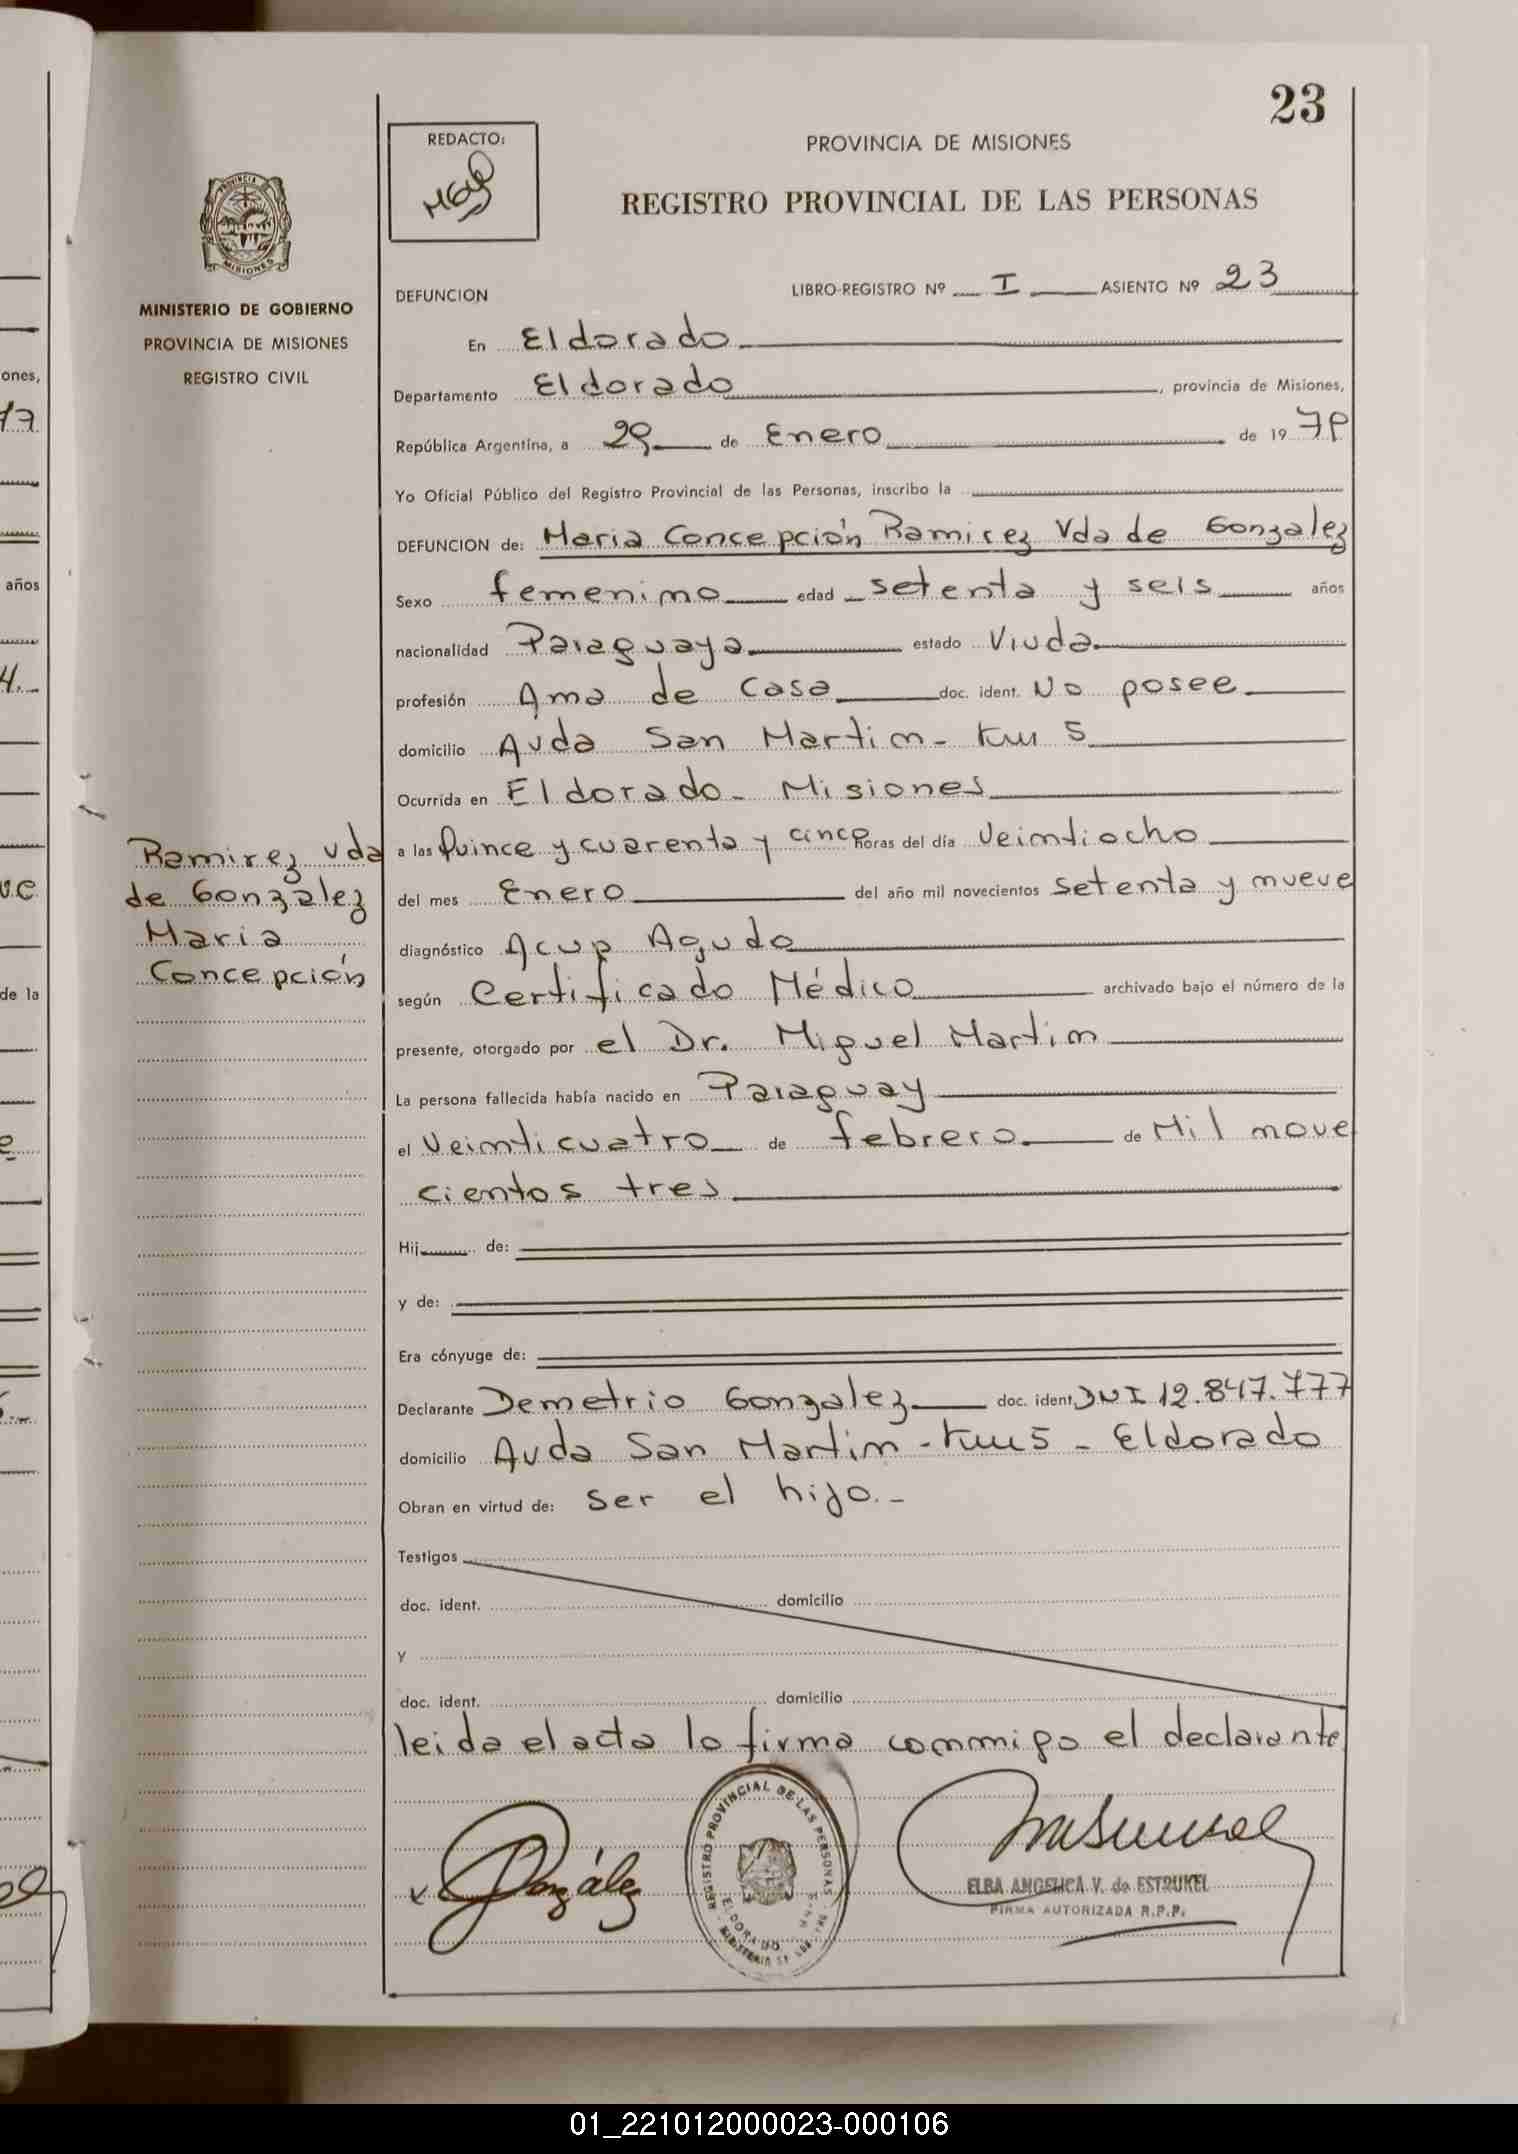 23
REDACTO:
PROVINCIA DE MISIONES
REGISTRO PROVINCIAL DE LAS PERSONAS
PROVINCIA
MISIONES
MINISTERIO DE GOBIERNO
PROVINCIA DE MISIONES
REGISTRO CIVIL
DEFUNCION LIBRO-REGISTRO Nº I ASIENTO Nº 23
En Eldorado
Departamento Eldorado, provincia de Misiones,
República Argentina, a 29 de Enero de 1979
Yo Oficial Público del Registro Provincial de las Personas, inscribo la
DEFUNCION de: Maria Concepción Ramirez Vda de Gonzalez
Sexo femenino edad setenta y seis años
nacionalidad Paraguaya estado Viuda
profesión Ama de Casa doc. ident. No posee
domicilio Avda San Martin - Km 5
Ocurrida en Eldorado - Misiones
a las Quince y cuarenta y cinco horas del día Veintiocho
del mes Enero del año mil novecientos setenta y nueve
diagnóstico Acup Agudo
según Certificado Médico archivado bajo el número de la
presente, otorgado por el Dr. Miguel Martin
La persona fallecida había nacido en Paraguay
el Veinticuatro de febrero de Mil nove
cientos tres
Hij de:
y de:
Era cónyuge de:
Declarante Demetrio Gonzalez doc. ident. DNI 12.847.777
domicilio Avda San Martin - Km 5 - Eldorado
Obran en virtud de: Ser el hijo.-
Testigos
doc. ident. domicilio
y
doc. ident. domicilio
leida el acta lo firma conmigo el declarante
Ramirez Vda
de Gonzalez
Maria
Concepción
González
REGISTRO PROVINCIAL DE LAS PERSONAS
ELDORADO
ELBA ANGELICA V. de ESTRUKEL
FIRMA AUTORIZADA R.P.P.
ones,
17
años
4.-
ve
de la
e
01_221012000023-000106